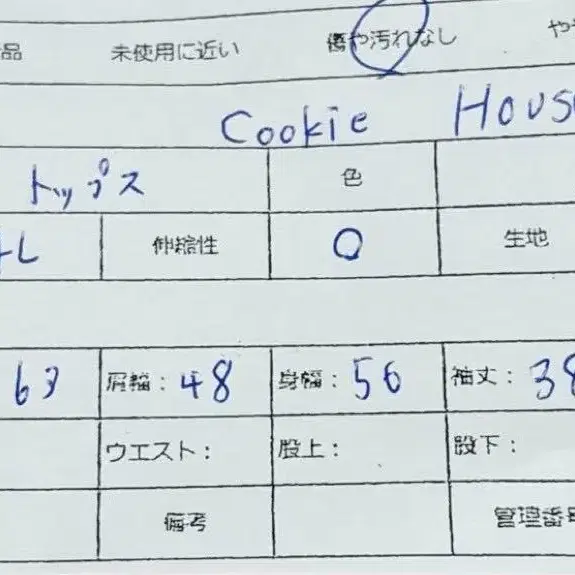 品 未使用に近い 傷や汚れなし や
Cookie Hous
トップス 色
4L 伸縮性 ○ 生地
63 肩幅：48 身幅：56 袖丈：38
ウエスト： 股上： 股下：
備考 管理番号